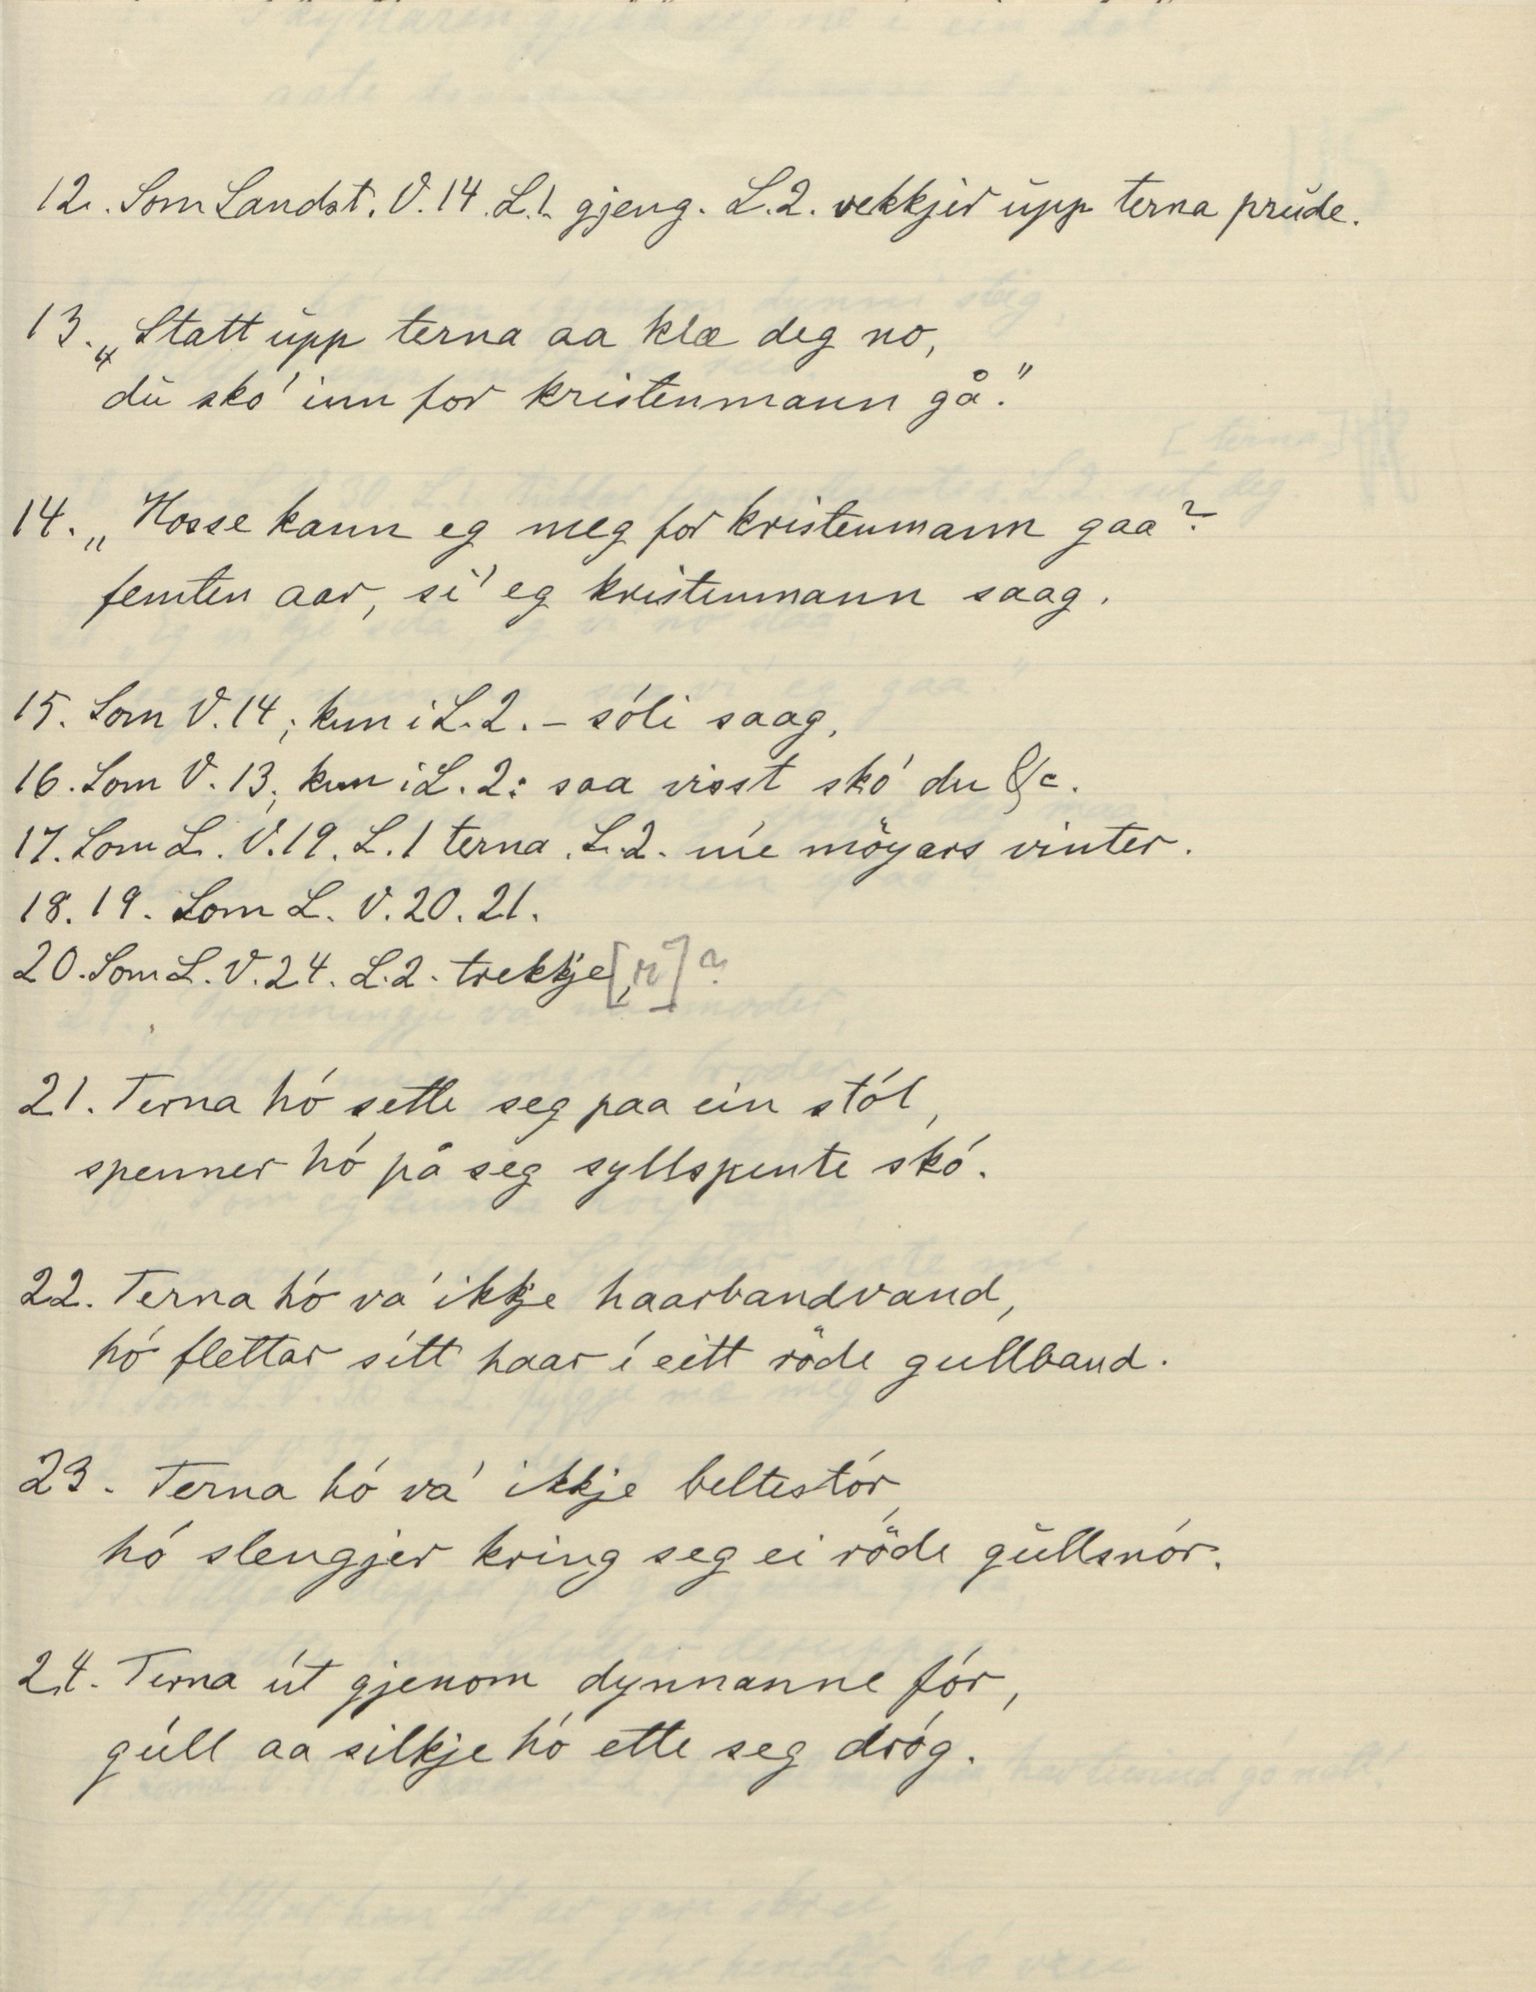 12. Som Landst. V. 14. L.1. gjeng. L.2. vekkjer upp terna prude.
13. „Statt upp terna aa klæ deg no,
du sko' inn for kristenmann gå."
14. „Hosse kann eg meg for kristenmann gaa?
femten aar, si' eg kristenmann saag.
15. Som V. 14; kun i L.2. – sóli saag.
16. Som V. 13; kun i L.2: saa visst skó' du &c.
17. Som L. V. 19. L.1 terna. L.2. nie möyars vinter.
18. 19. Som L. V. 20. 21.
20. Som L. V. 24. L.2. trekkje[r]?
21. Terna hó sette seg paa ein stól,
spenner hó på seg syllspente skó.
22. Terna hó va' ikkje haarbandvand,
hó flettar sitt haar i eitt röde gullband.
23. Terna hó va' ikkje beltestór,
hó slengjer kring seg ei röde gullsnór.
24. Terna út gjenom dynnanne fór,
gúll aa silkje hó ette seg dróg.